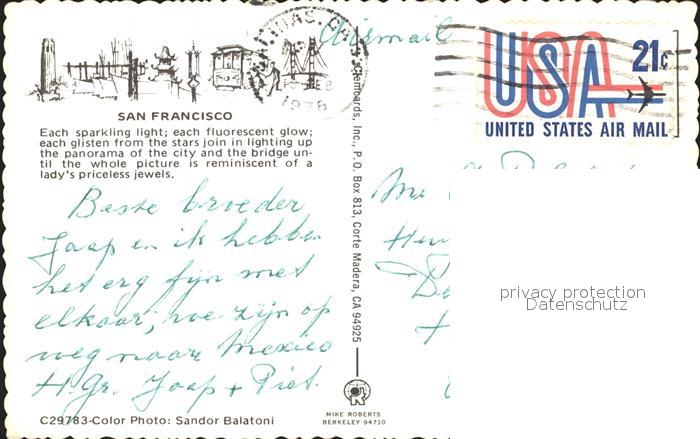 Airmail
USA 21c
UNITED STATES AIR MAIL
1976
SAN FRANCISCO
Each sparkling light; each fluorescent glow;
each glisten from the stars join in lighting up
the panorama of the city and the bridge un-
til the whole picture is reminiscent of a
lady's priceless jewels.
Beste broeder
Jaap en ik hebben
het erg fijn met
elkaar, we zijn op
weg naar Mexico
H.Gr. Jaap + Piet.
C29783-Color Photo: Sandor Balatoni
Smithcards, Inc., P.O. Box 813, Corte Madera, CA 94925
MIKE ROBERTS
BERKELEY 94710
privacy protection
Datenschutz